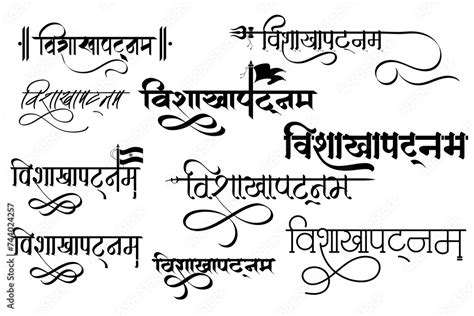 ॥विशाखापट्नम॥
विशाखापट्नम
विशाखापट्नम
विशाखापट्नम
विशाखापट्नम
विशाखापट्नम
विशाखापट्नम
विशाखापट्नम
विशाखापट्नम
विशाखापट्नम
Adobe Stock | #744024257